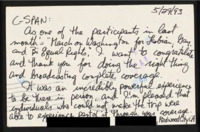 5/24/93
C-SPAN:
As one of the participants in last
month's March on Washington for Lesbian, Gay
and Bi Equal Rights, I want to congratulate
and thank you for doing the right thing
and broadcasting complete coverage.
It was an incredibly powerful experience
to be there in person and I'm pleased that
individuals who could not make the trip was
able to experience part of it through your coverage